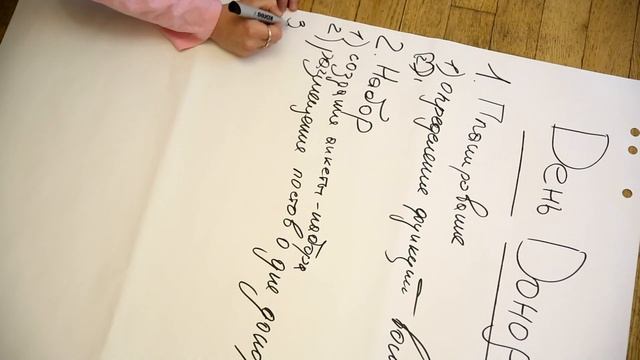 День Доно
1. Планирование
1) определение функции вол
2. Набор
1) создание анкеты-набора
2) размещение постов о дне дон
3